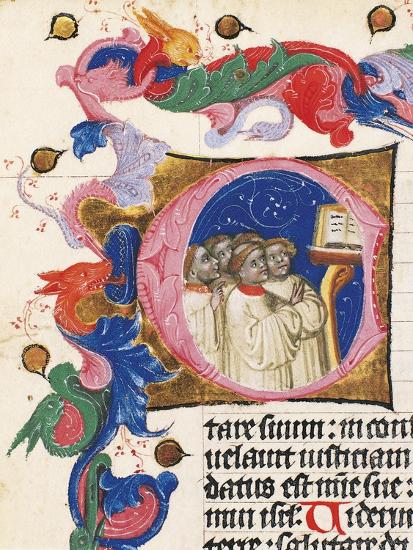 tare suum : in con
uelauit iusticiam
datus est mie sue :
mui isrl. Uideru
terre : salutare dei